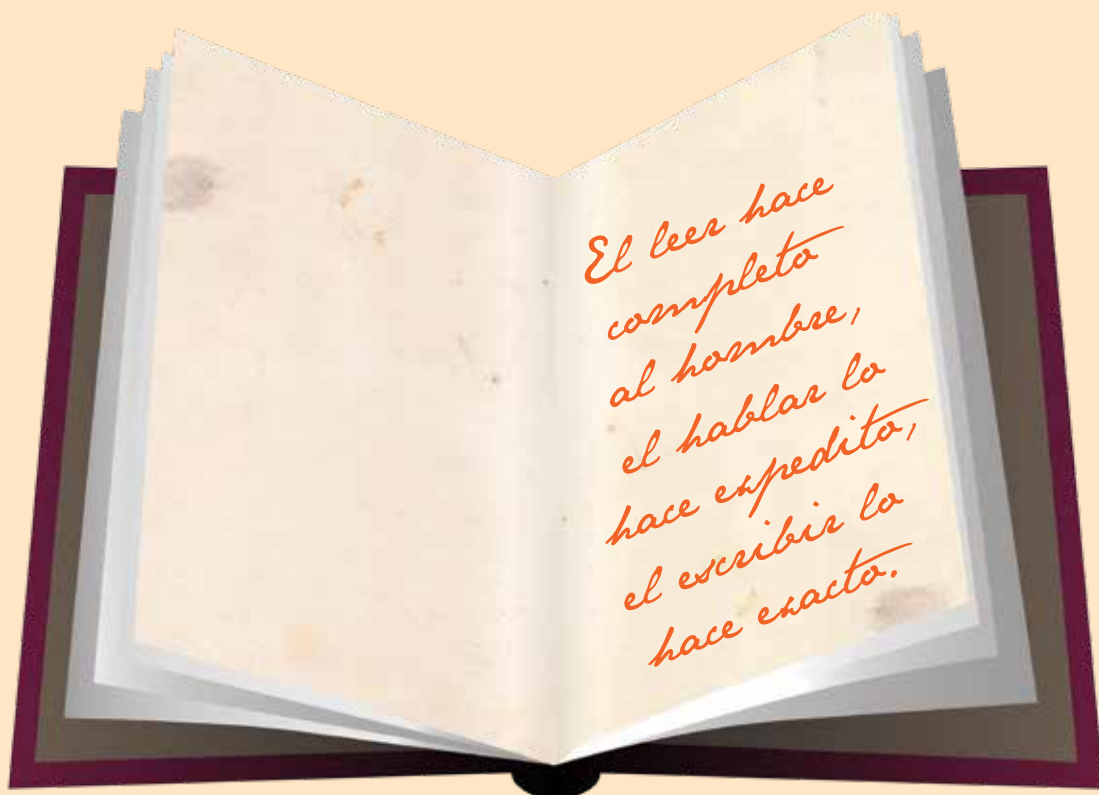 El leer hace
completo
al hombre,
el hablar lo
hace expedito,
el escribir lo
hace exacto.